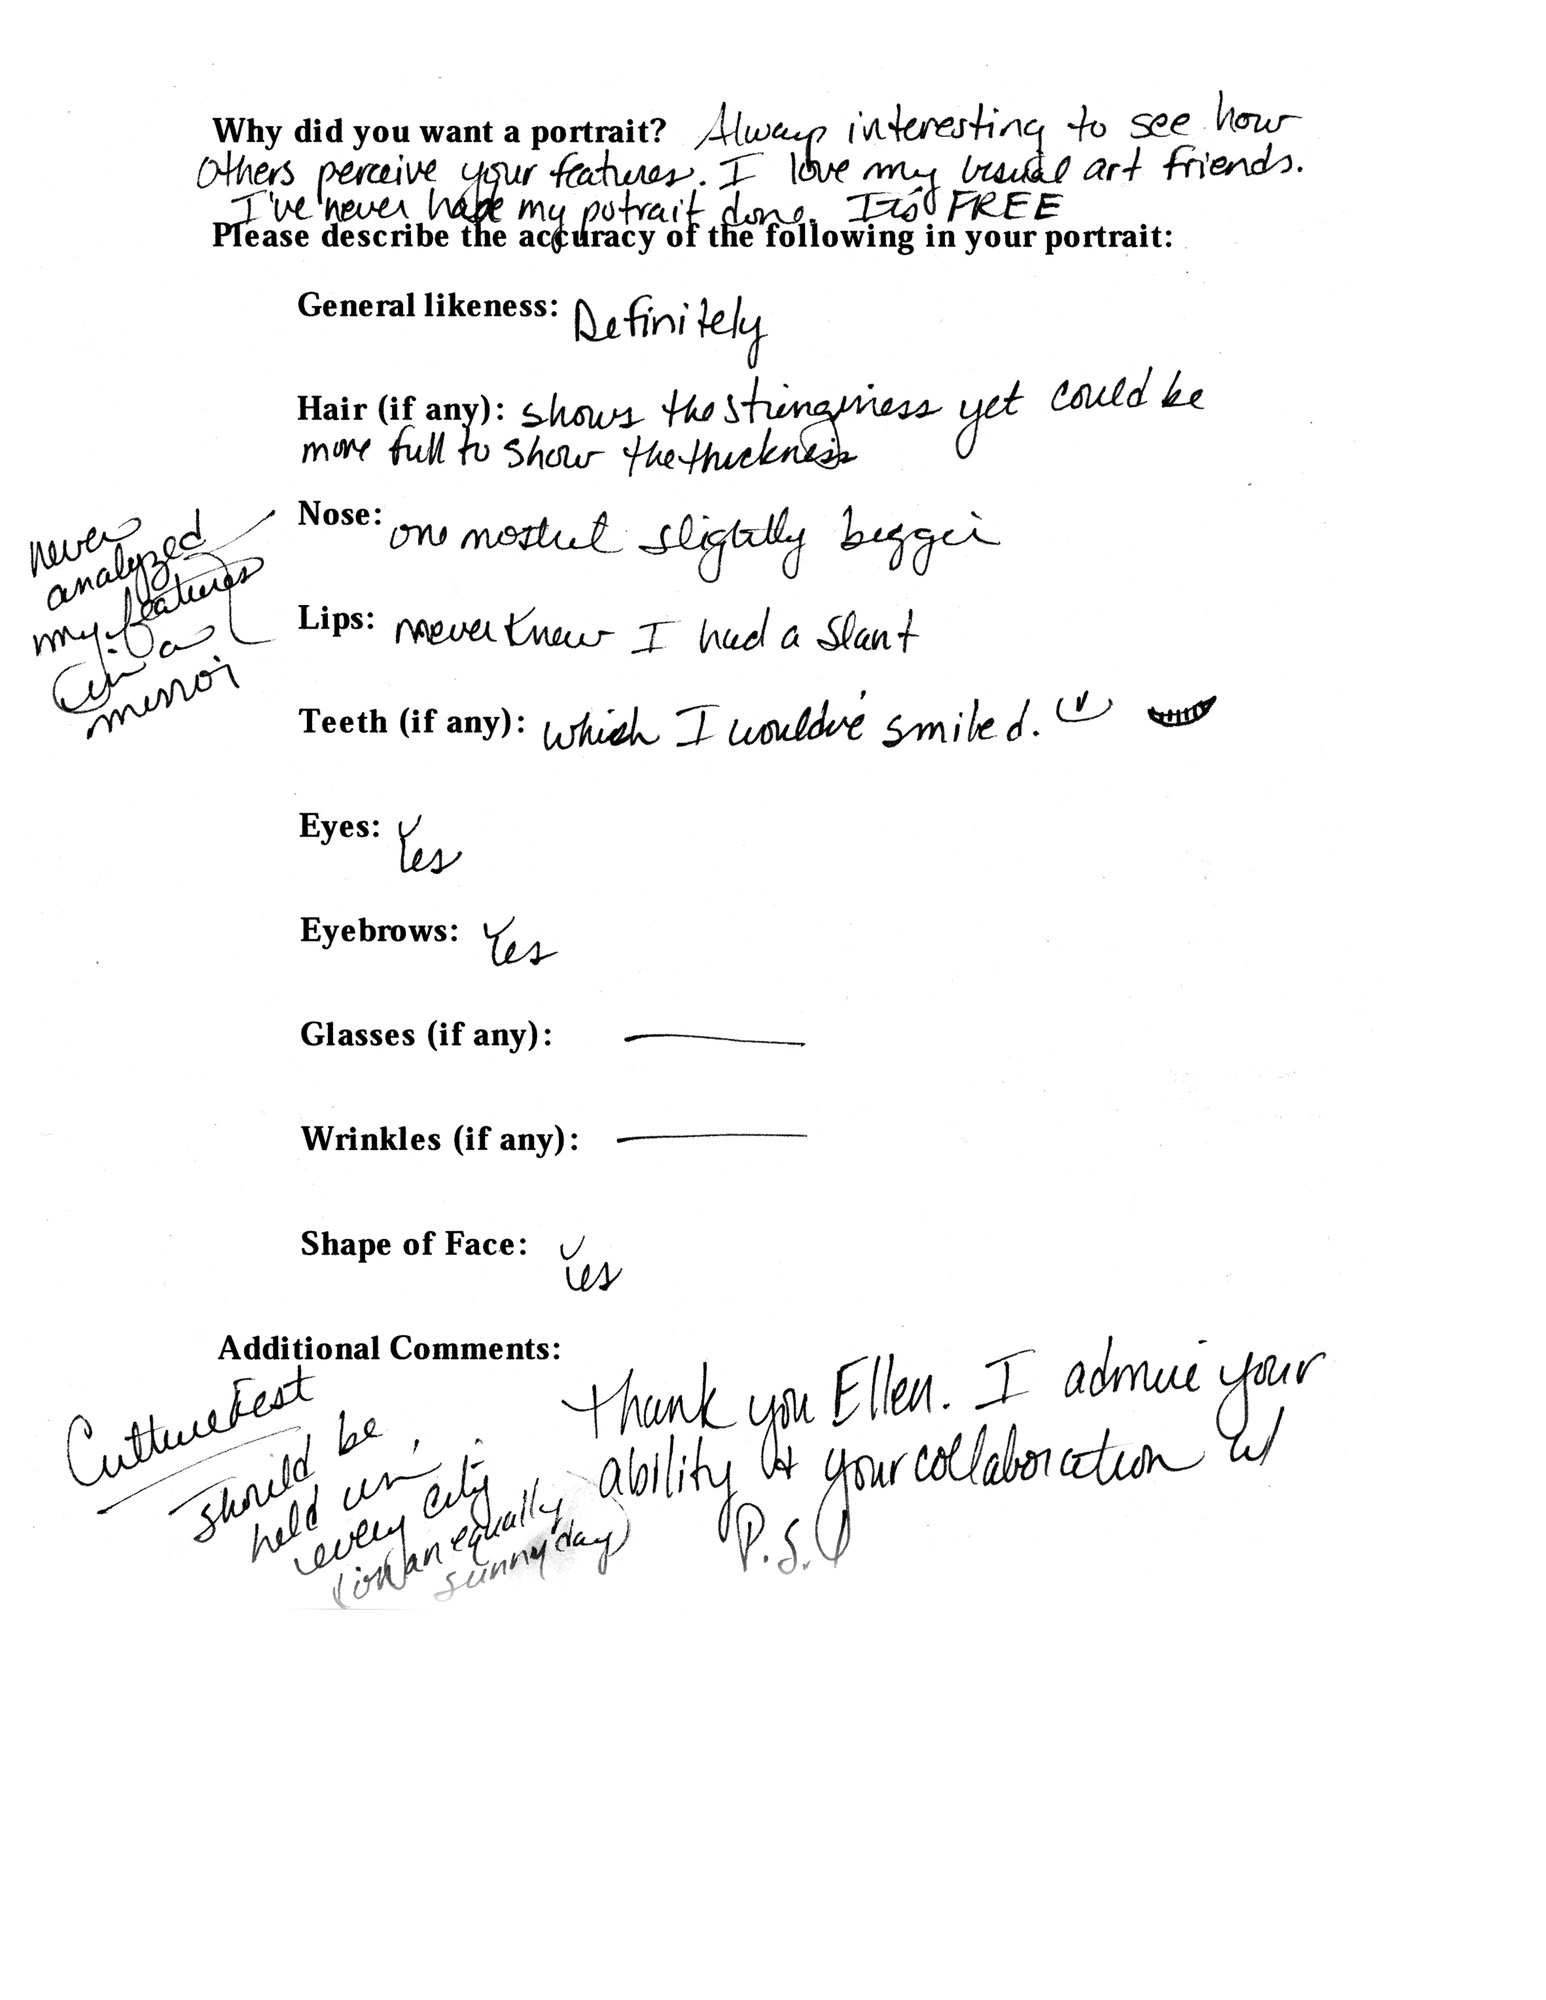 Why did you want a portrait? Always interesting to see how
others perceive your features. I love my visual art friends.
I've never had my potrait done. It's FREE
Please describe the accuracy of the following in your portrait:
General likeness: Definitely
Hair (if any): shows the stringiness yet could be
more full to show the thickness
Nose: one nostril slightly bigger
never
analyzed
my features
in a
mirror
Lips: never knew I had a slant
Teeth (if any): which I would've smiled.
Eyes: Yes
Eyebrows: Yes
Glasses (if any):
Wrinkles (if any):
Shape of Face: Yes
Additional Comments:
Thank you Ellen. I admire your
ability & your collaboration w/
P.S.
CultureFest
should be
held in
every city
(on an equally
sunny day)